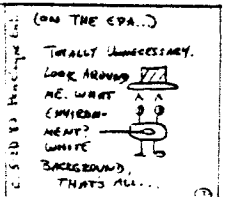 (ON THE EPA...)
TOTALLY UNNECESSARY.
LOOK AROUND
ME. WHAT
ENVIRON-
MENT?
WHITE
BACKGROUND,
THAT'S ALL...